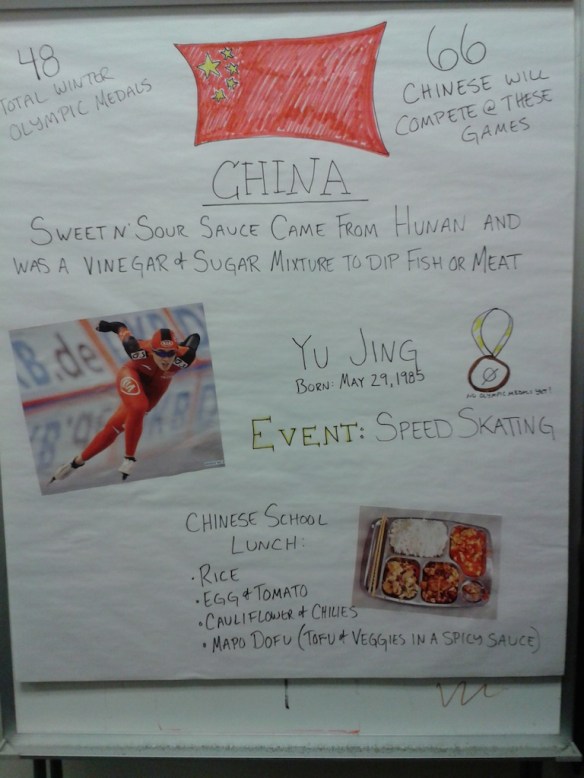 48
TOTAL WINTER
OLYMPIC MEDALS
66
CHINESE WILL
COMPETE @ THESE
GAMES
CHINA
SWEET N' SOUR SAUCE CAME FROM HUNAN AND
WAS A VINEGAR & SUGAR MIXTURE TO DIP FISH OR MEAT
YU JING
BORN: MAY 29, 1985
NO OLYMPIC MEDALS YET!
EVENT: SPEED SKATING
CHINESE SCHOOL
LUNCH:
• RICE
• EGG & TOMATO
• CAULIFLOWER & CHILIES
• MAPO DOFU (TOFU & VEGGIES IN A SPICY SAUCE)